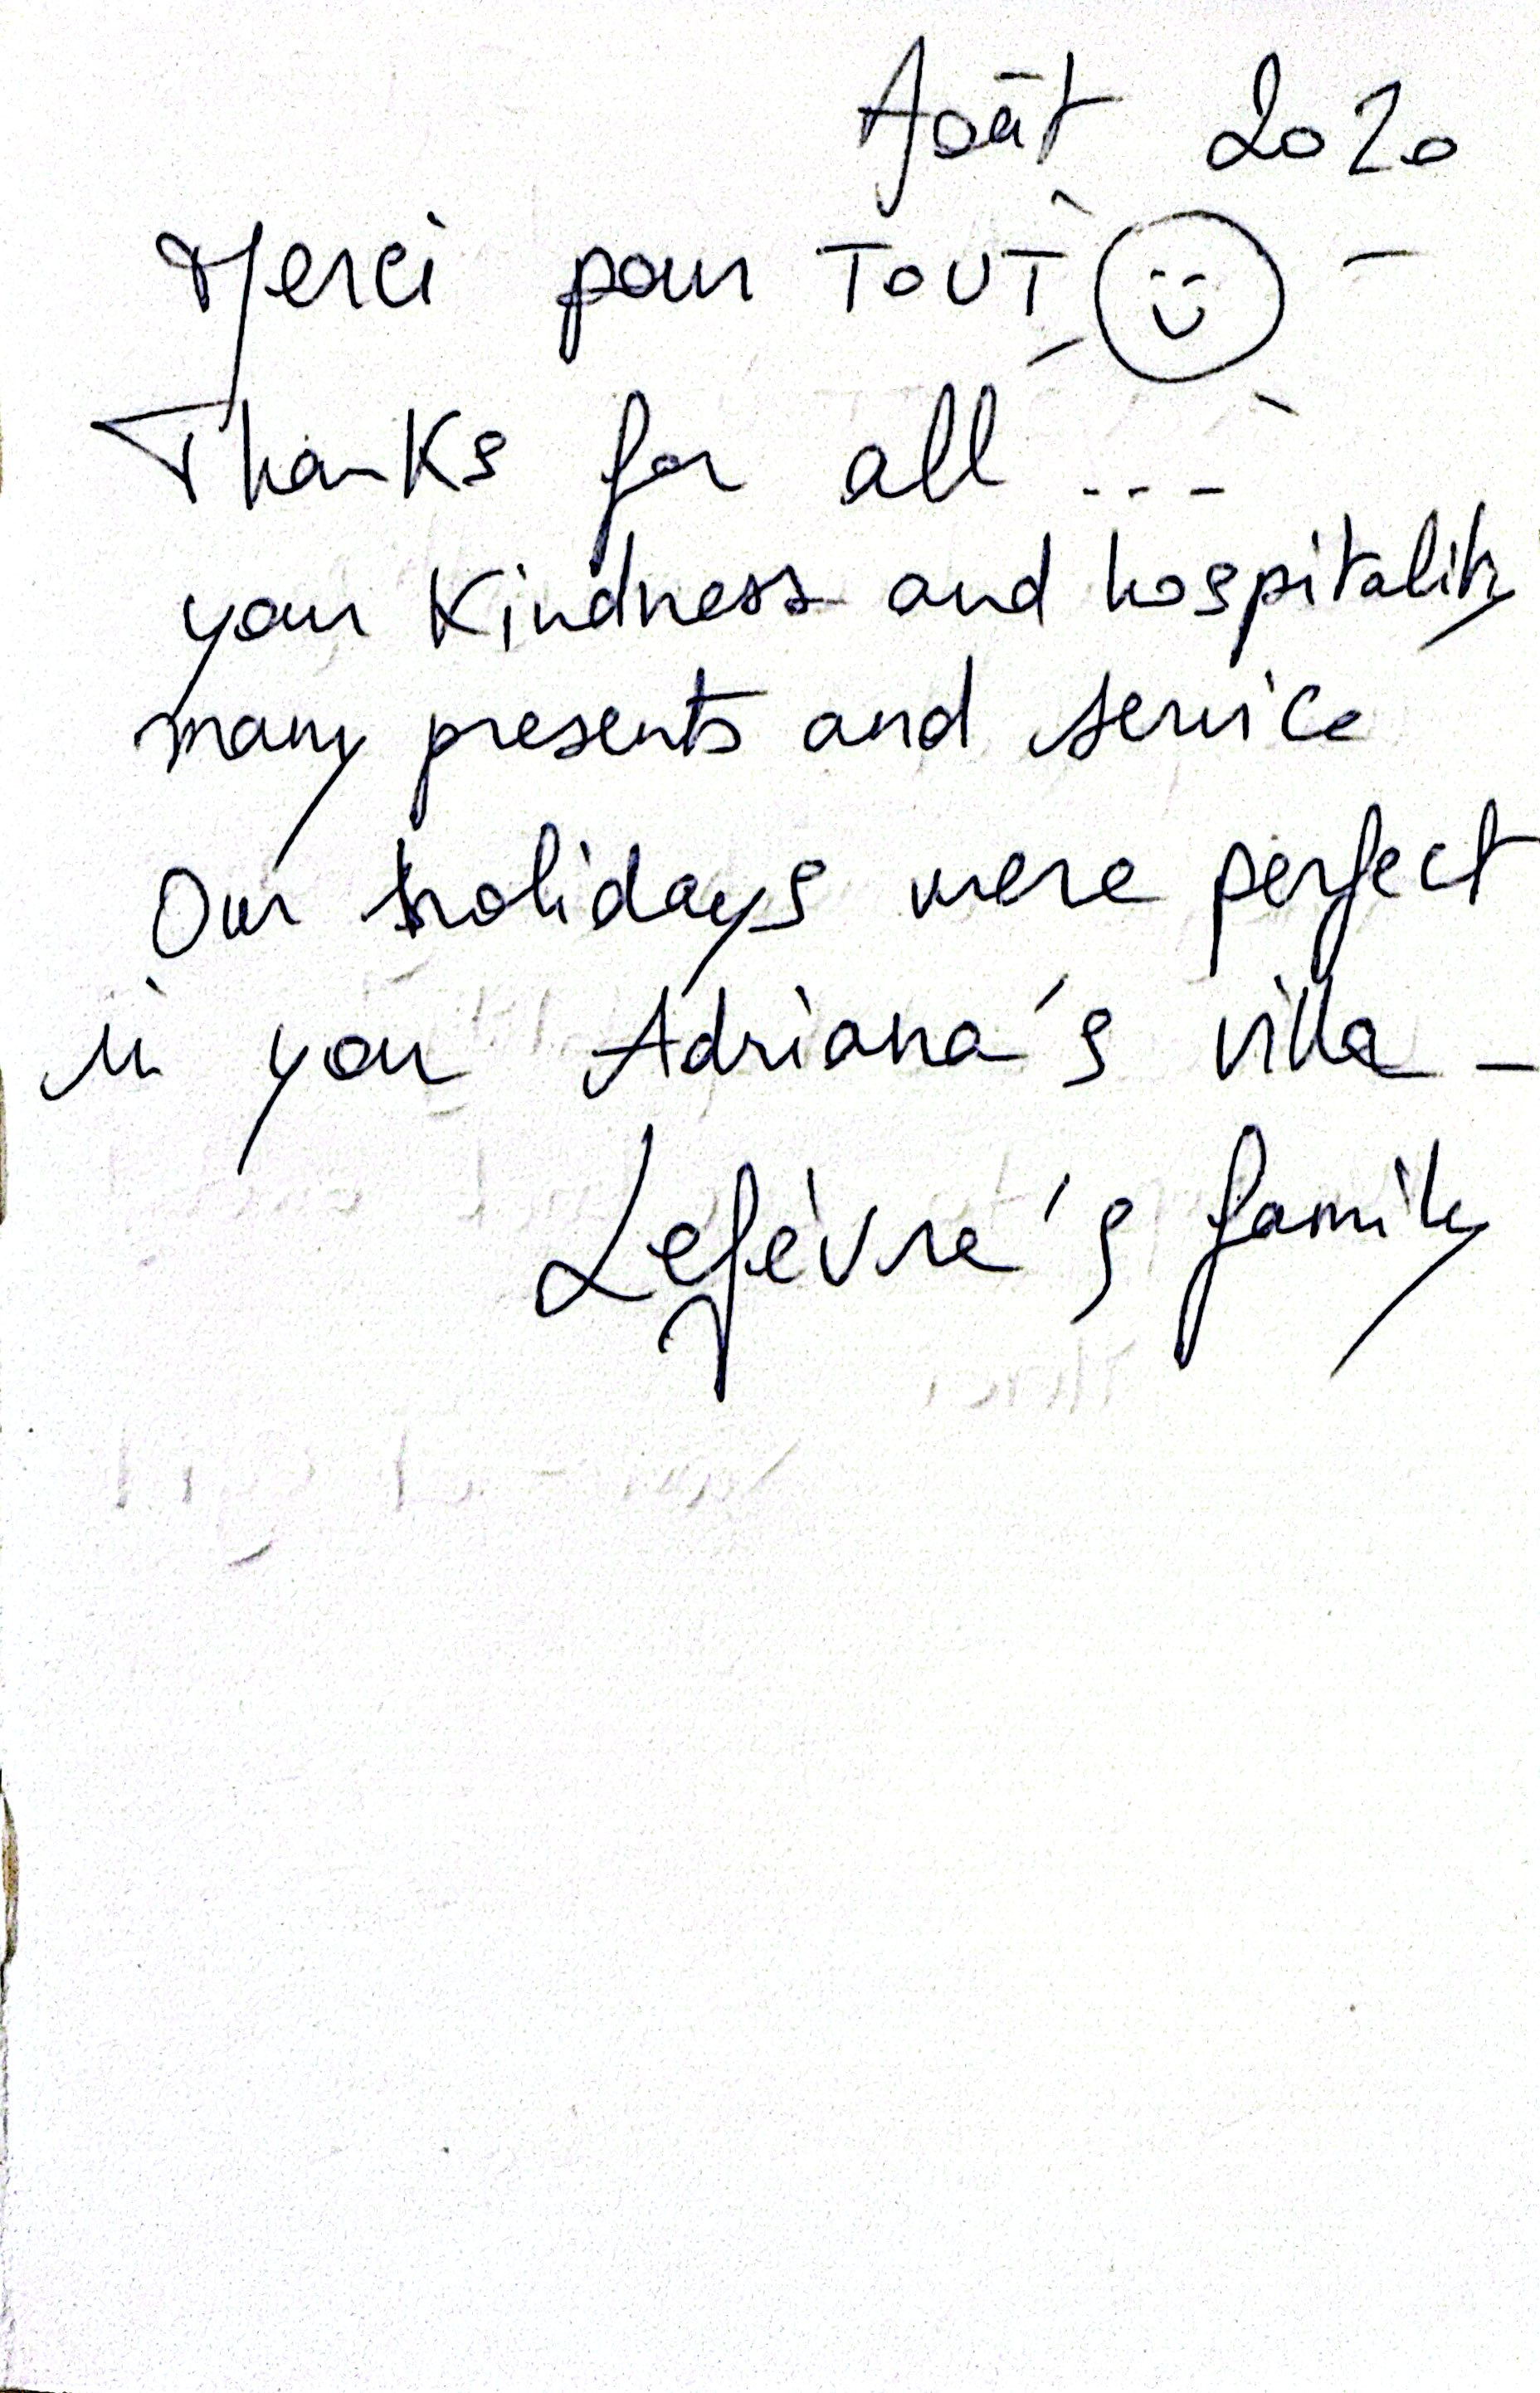 Août 2020
Merci pour TOUT
Thanks for all ...
your Kindness and hospitality
many presents and service
Our holidays were perfect
in your Adriana's villa -
Lefèvre's family